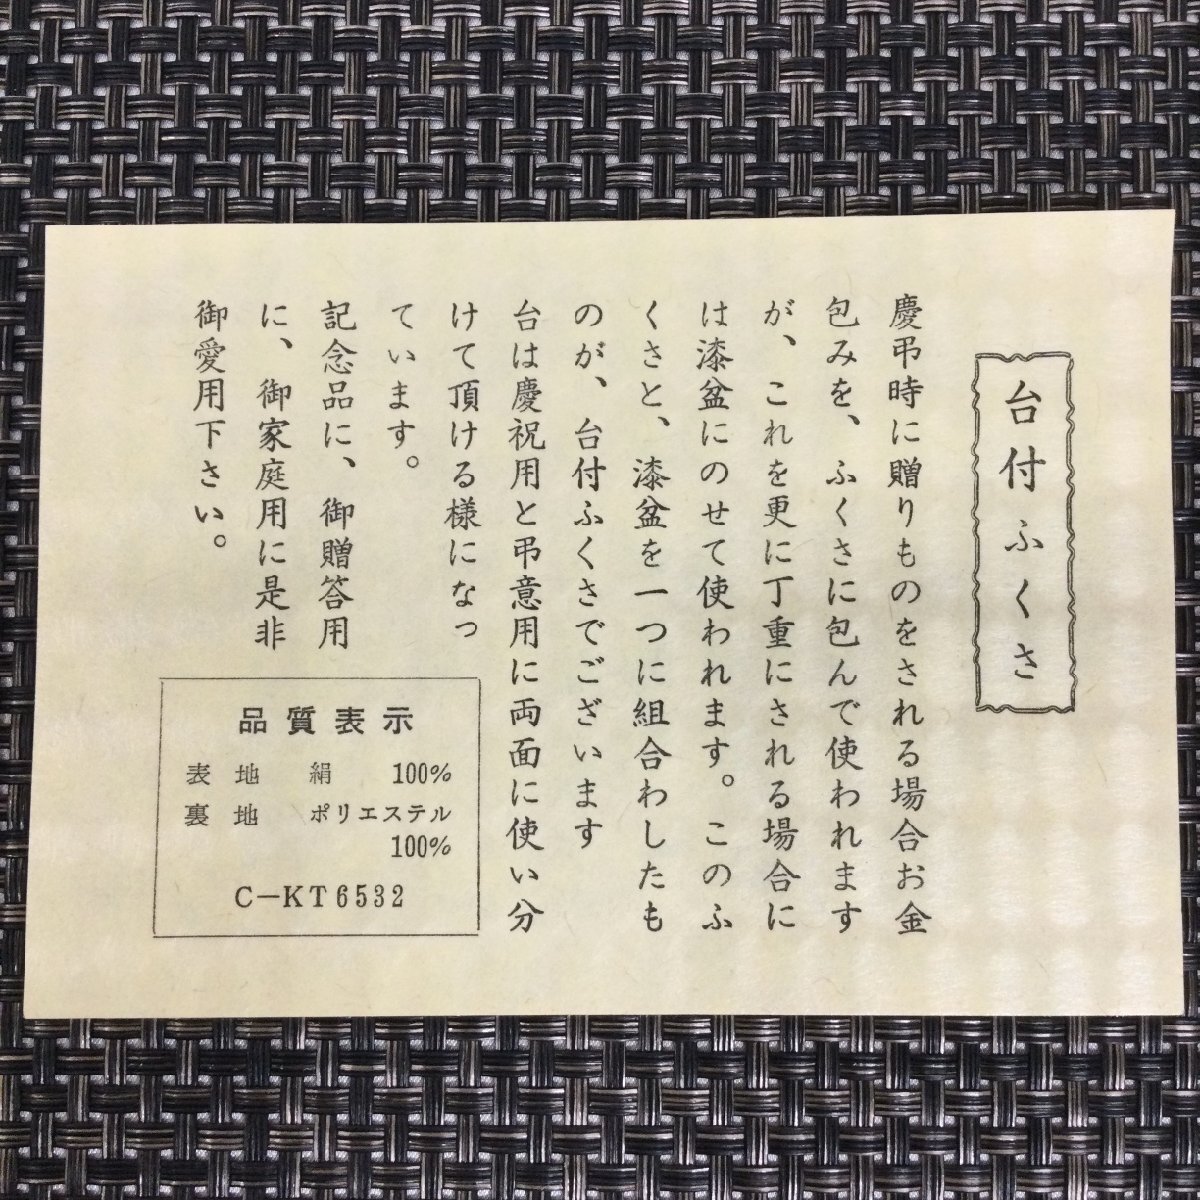 台付ふくさ
慶弔時に贈りものをされる場合お金
包みを、ふくさに包んで使われます
が、これを更に丁重にされる場合に
は漆盆にのせて使われます。このふ
くさと、漆盆を一つに組合わしたも
のが、台付ふくさでございます
台は慶祝用と弔意用に両面に使い分
けて頂ける様になっ
ています。
記念品に、御贈答用
に、御家庭用に是非
御愛用下さい。
品質表示
表地 絹 100%
裏地 ポリエステル
100%
C-KT6532